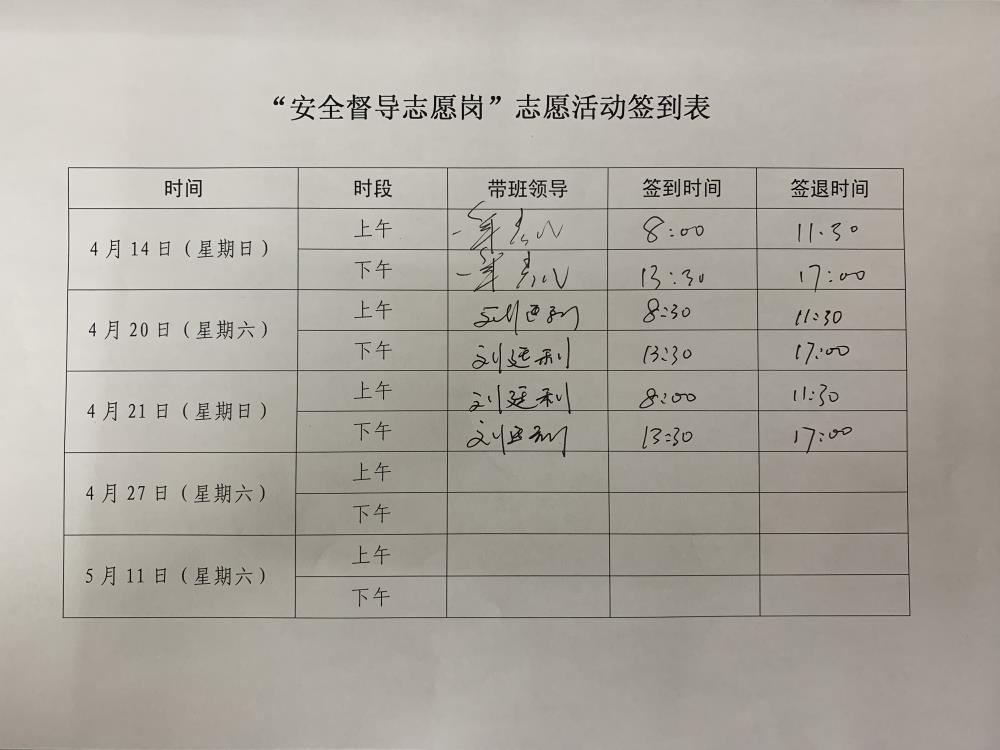 “安全督导志愿岗”志愿活动签到表
时间 时段 带班领导 签到时间 签退时间
4月14日（星期日） 上午 8:00 11:30
下午 13:30 17:00
4月20日（星期六） 上午 刘廷利 8:30 11:30
下午 刘廷利 13:30 17:00
4月21日（星期日） 上午 刘廷利 8:00 11:30
下午 刘廷利 13:30 17:00
4月27日（星期六） 上午
下午
5月11日（星期六） 上午
下午